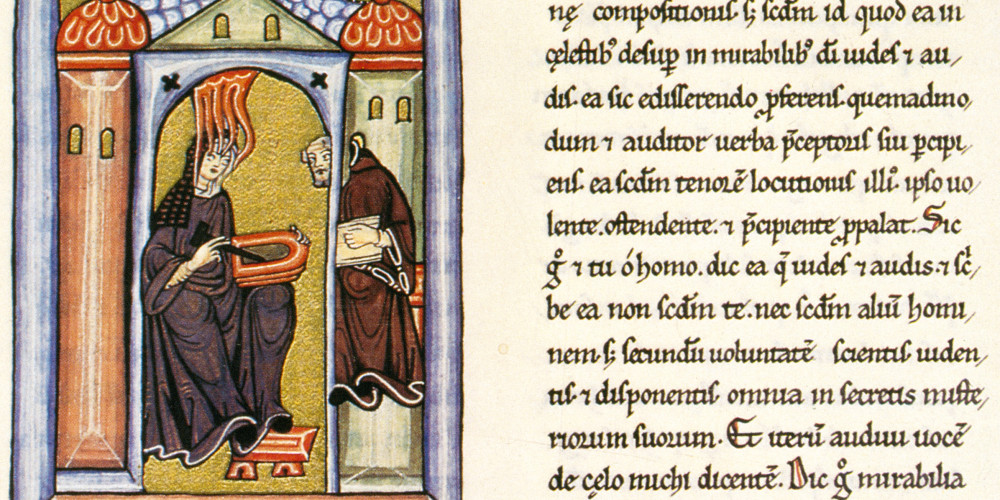 nę compositionis. s; scđm id quod ea in
cęlestibꝰ desuꝑ in mirabilibꝰ dı̄ uides ⁊ au/
dis. ea sic edisserendo ꝓferens. quemadmo/
dum ⁊ auditor uerba p̄ceptoris sui ꝑcipi/
ens. ea scđm tenorē locutionis illiꝰ. ipso uo/
lente. ostendente. ⁊ p̄cipiente ꝓpalat. Sic
gͦ ⁊ tu ó homo. dic ea q̄ uides ⁊ audis. ⁊ sc̍/
be ea non scđm te. nec scđm aliū homi/
nem. s; secundū uoluntatē scientis uiden/
tis ⁊ disponentis omnia in secretis miste/
riorum suorum. Et iterū audiui uocē
de cęlo michi dicentē. Dic gͦ mirabilia